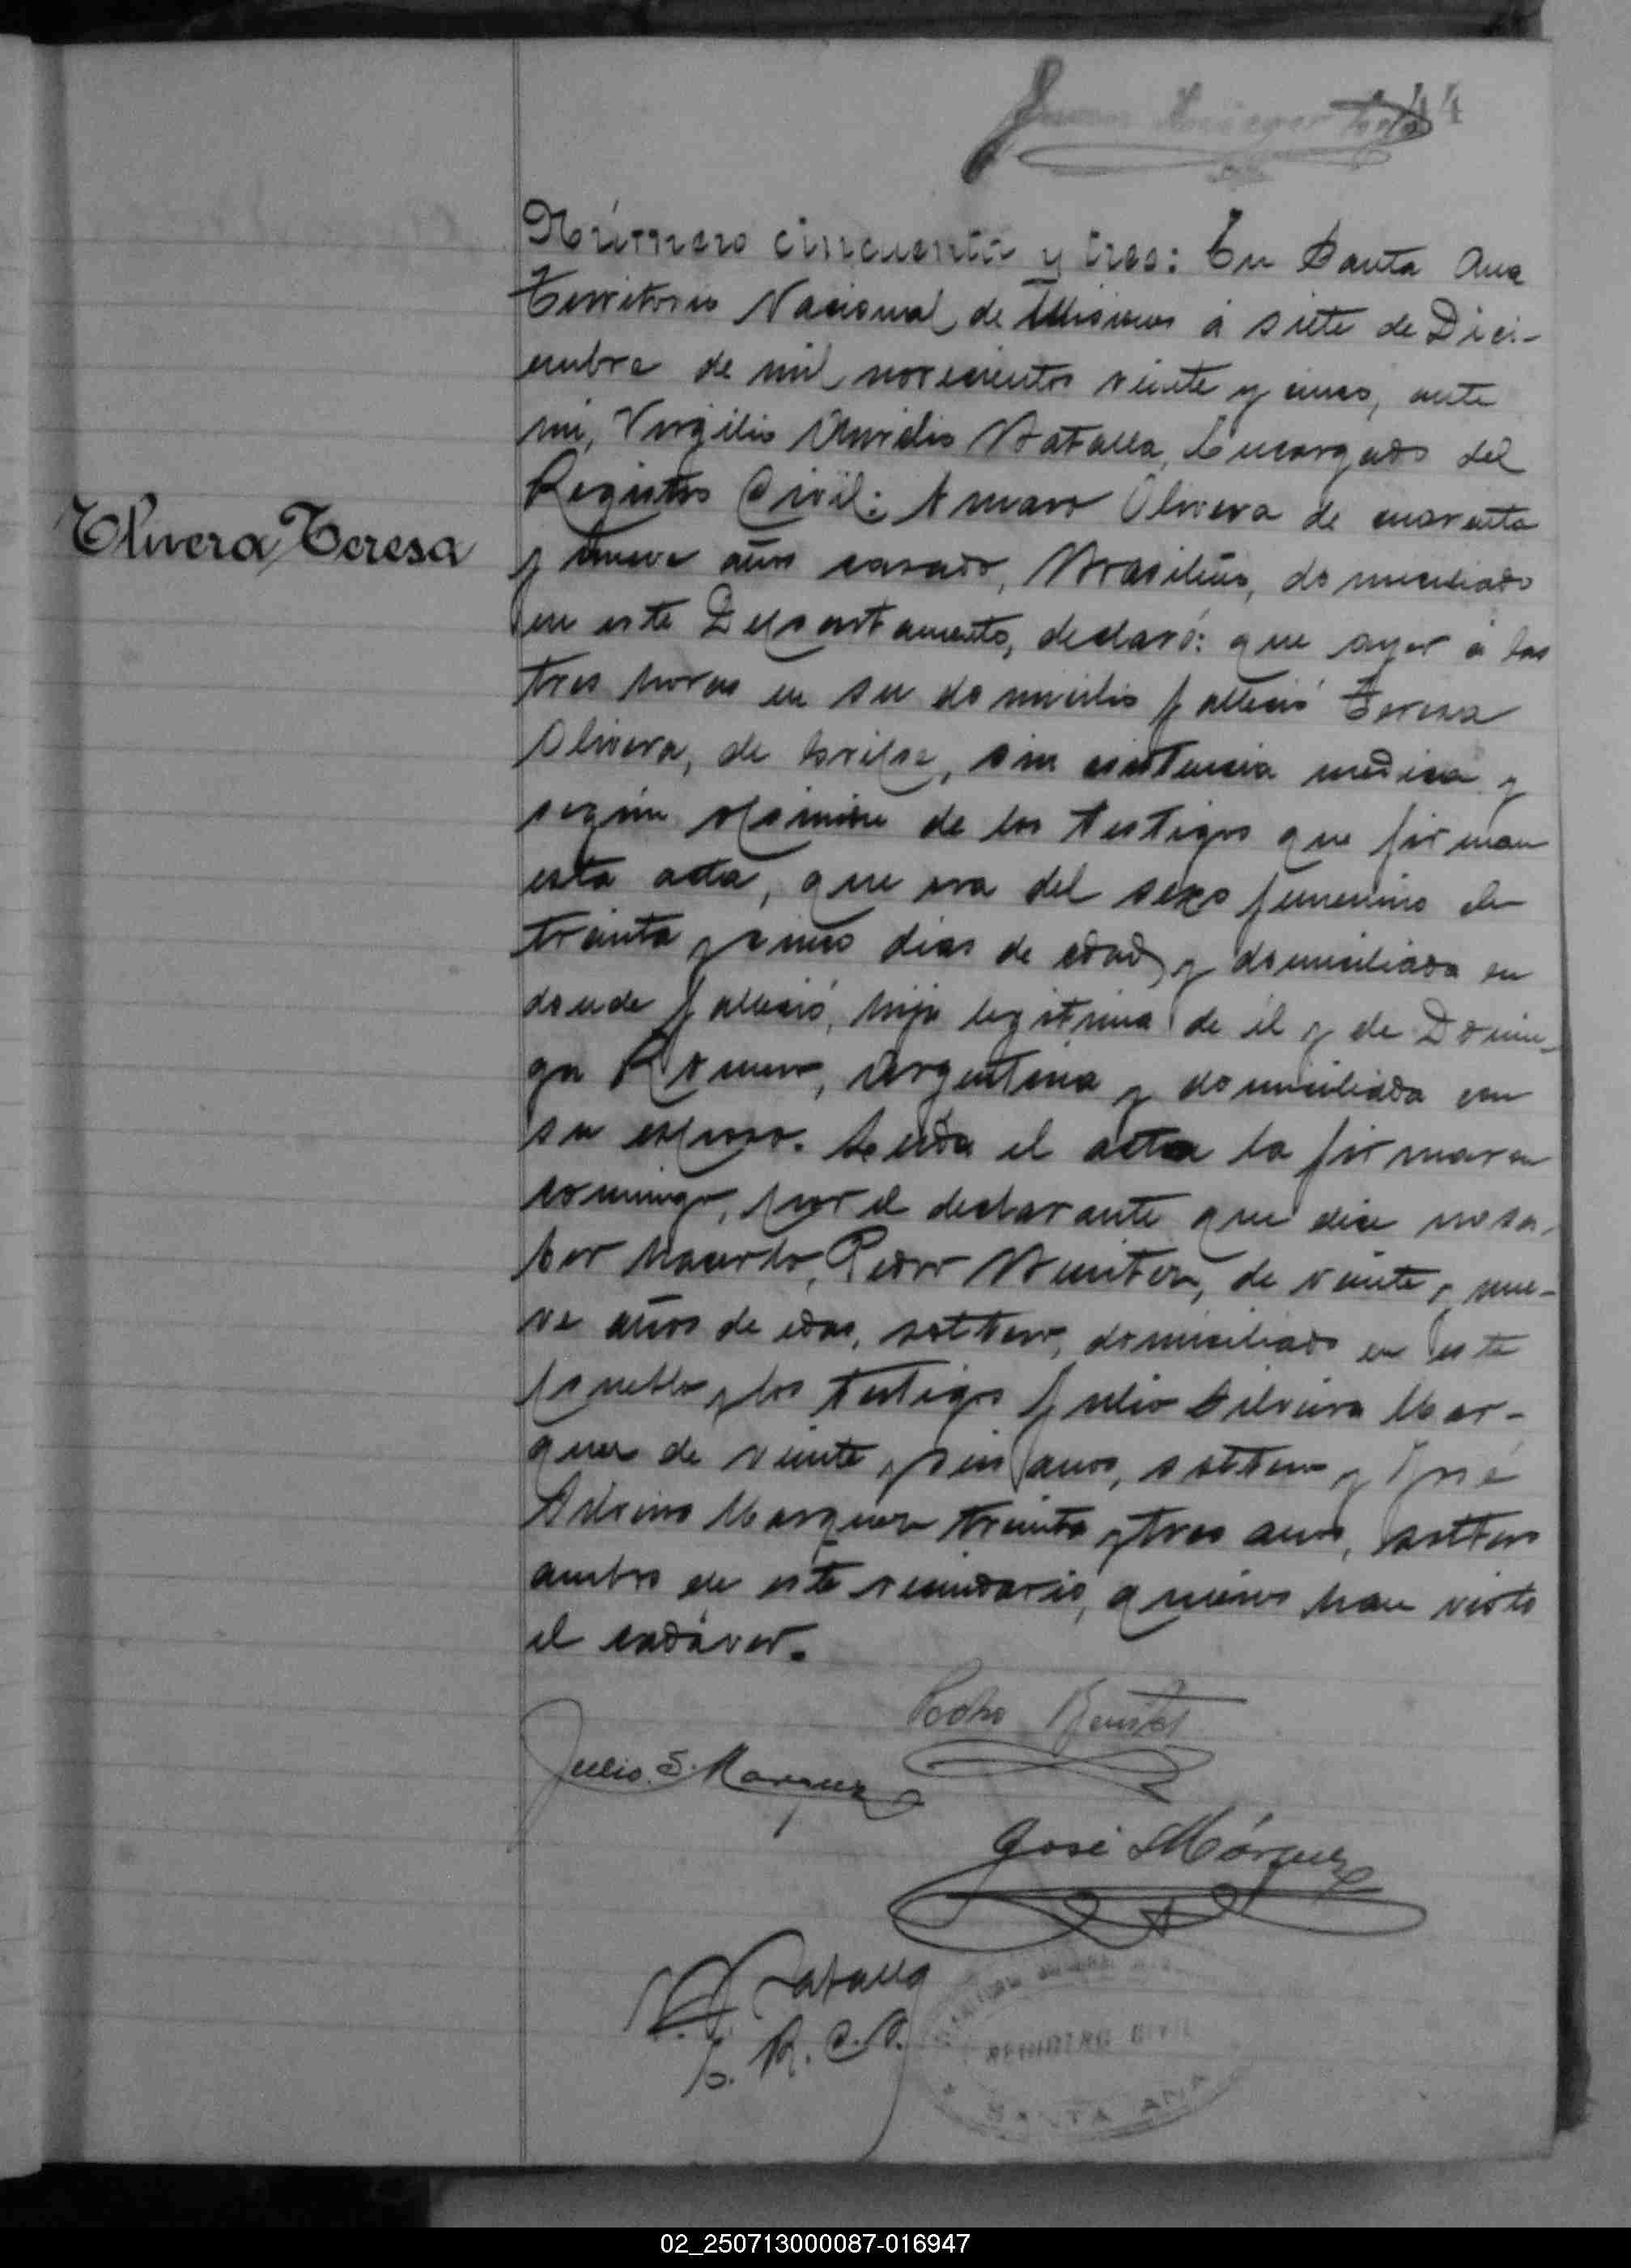 44
Número cincuenta y tres: En Santa Ana
Territorio Nacional de Misiones á siete de Dici-
embre de mil novecientos veinte y cinco, ante
mi, Virgilio Amrelio Batalla, Encargado del
Registro Civil: Amaro Olivera de cuarenta
Olivera Teresa
y nueve años casado, Brasileño, domiciliado
en este Departamento, declaró: que ayer á las
tres horas en su domicilio falleció Teresa
Olivera, de gripe, sin asistencia medica y
según opinión de los testigos que firman
esta acta, que era del sexo femenino de
treinta y cinco dias de edad y domiciliada en
donde falleció, hija legitima de él y de Domin-
ga Romero, Argentina y domiciliada con
su esposo. Leida el acta la firmaron
conmigo, por el declarante que dice no sa-
ber hacerlo, Pedro Benitez, de veinte y nue-
ve años de edad, soltero, domiciliado en este
pueblo y los testigos Julio Silveira Mar-
quez de veinte y seis años, soltero y José
Marquez treinta y tres años, soltero
ambos de este vecindario, quienes han visto
el cadáver.
Pedro Benitez
Julio S. Marquez
José Márquez
V. A. Batalla
E. R. C.
REGISTRO CIVIL
SANTA ANA
02_250713000087-016947